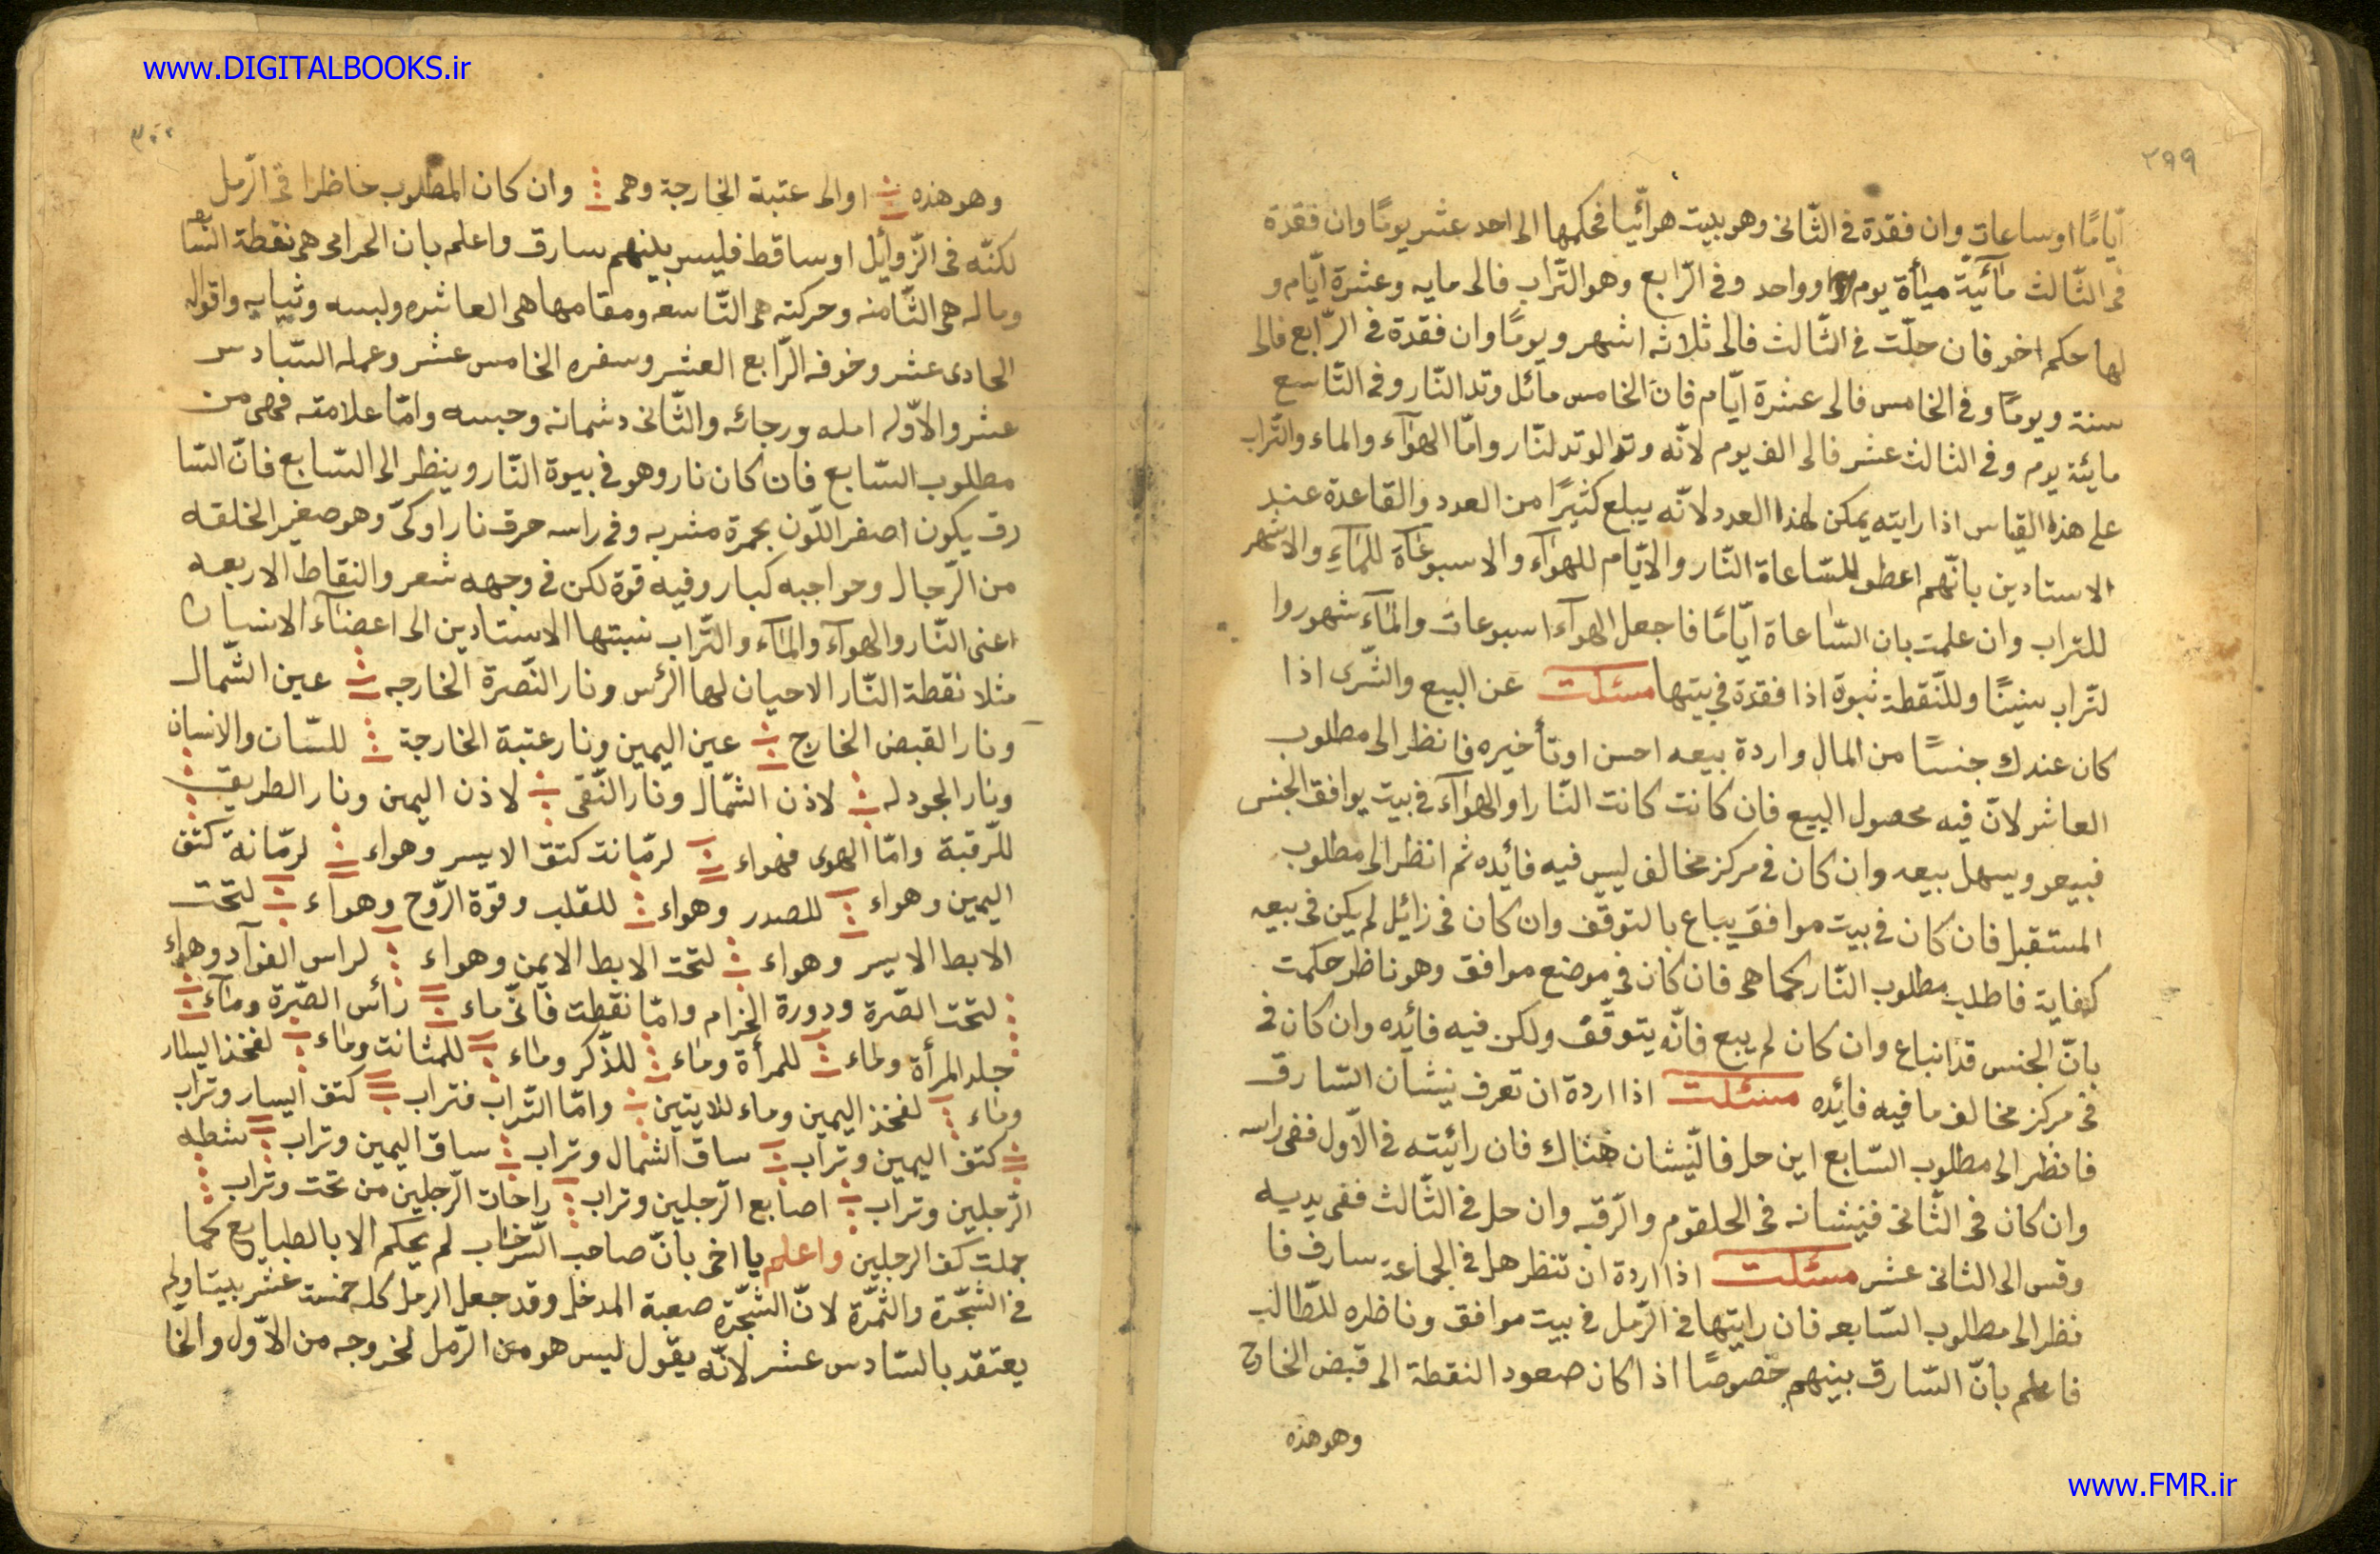 www.DIGITALBOOKS.ir
٢٩٩
ايّامًا اوساعات وان فقدة فى الثّانى وهو بليت هوائيا فحكمها الى احد عشر يومًا وان فقدة
فى الثّالث مآئيّة ميأة يوم وواحد وفى الرّابع وهو التّراب فالى مايه وعشرة ايّام و
لها حكم اخر فان حلّت فى الثّالث فالى ثلاثه اشهر ويومًا وان فقدة فى الرّابع فالى
سنة ويومًا وفى الخامس فالى عشرة ايّام فان الخامس مآئل وتد النّار وفى التّاسع
مايئة يوم وفى الثالث عشر فالى الف يوم لانّه وتد الوتد لنّار وامّا الهوآء والماء والتّراب
على هذه القياس اذا رايته يمكن لهذا العدد لانّه يبلع كثيرًا من العدد والقاعدة عند
الاستادين بانّهم اعطو للسّاعاة النّار والايّام للهوآء والاسبوعاة للمآء والاشهر
للتراب وان علمت بان السّاعاة ايّامًا فاجعل الهوآء اسبوعات والمآء شهور وا
لتّراب سنينًا وللنّقطة ثبوة اذا فقدة فى بيتها مسئلت عن البيع والشّرى اذا
كان عندك جنسًا من المال واردة بيعه احسن او تأخيره فانظر الى مطلوب
العاشر لانّ فيه محصول البيع فان كانت كانت النّار او الهوآء فى بيت يوافق الجنس
فبيعو ويسهل بيعه وان كان فى مركز مخالف ليس فيه فائده ثم انظر الى مطلوب
المستقبل فان كان فى بيت موافق يباع بالتوقّف وان كان فى زائل لم يكن فى بيعه
كفاية فاطلب مطلوب النّار كما هى فان كان فى موضع موافق وهو ناظر حكمت
بانّ الجنس قد انباع وان كان لم يبع فانّه يتوقّف ولكن فيه فائده وان كان فى
فى مركز مخالف ما فيه فائده مسئلت اذا اردة ان تعرف نيشان السّارق
فانظر الى مطلوب السّابع اين حل فالنّيشان هناك فان رائيته فى الاّول ففى راسه
وان كان فى الثّانى فنيشانه فى الحلقوم والرّقبه وان حل فى الثّالث ففى يديه
وقس الى الثانى عشر مسئلت اذا اردة ان تنظر هل فى الجماعة سارف فا
نظر الى مطلوب السّابعه فان رايتها فى الرّمل فى بيت موافق وناظره للطّالب
فاعلم بانّ السّارق بينهم خصوصًا اذا كان صعود النقطة الى قبض الخارج
وهو هذه
٣٠٠
وهو هذه او الى عتبة الخارجة وهى وان كان المطلوب حاظرا فى الرّمل
لكنّه فى الزّوايل او ساقط فليس بينهم سارق واعلم بان الحرامى هى نقطة السّا
وماله هى الثّامنه وحركته هى التّاسعه ومقامها هى العاشره ولبسه وثيابه واقواله
الحادى عشر وخوفه الرّابع العشر وسفره الخامس عشر وعمله السّادس
عشر والاوّله امله ورجائه والثّانى دشمانه وحبسه وامّا علامته فهى من
مطلوب السّابع فان كان نار وهو فى بيوة النّار وينظر الى السّابع فانّ السّا
رق يكون اصفر اللّون بحمرة مشربه وفى راسه حرق نار او كىّ وهو صغير الخلقه
من الرّجال وحواجبه كبار وفيه قوة لكن فى وجهه شعر والنقاط الاربعه
اعنى النّار والهوآء والمآء والتّراب نسبتها الاستادين الى اعضآء الانسان
مثلا نقطة النّار الاحيان لها الرئس ونار النّصرة الخارجه عين الشّمال
ونار القبض الخارج عين اليمين ونار عتبة الخارجة للسّان والانسان
ونار الجودله لاذن الشّمال ونار النّقى لاذن اليمين ونار الطريق
للرّقبة وامّا الهوى فهواء لرمّانت كتق الايسر وهواء لرمّانة كتف
اليمين وهواء للصدر وهواء للقلب وقوة الرّوح وهواء لتحت
الابط الايسر وهواء لتحت الابط الايمن وهواء لراس الفوآد وهواء
لتحت الصّرة ودورة الحزام وامّا نقطت فانّى ماء رأس الصّرة ومآء
جلد المرأة وماء للمرأة ومٰاء للذّكر ومٰاء للمثانت ومٰاء لفخذ اليسار
ومٰاء لفخذ اليمين وماء للايتين وامّا التّراب فتراب كتف اليسار وتراب
كتف اليمين وتراب ساق الشمال وتراب ساق اليمين وتراب شطه
الرّجلين وتراب اصابع الرّجلين وتراب راحات الرّجلين من تحت وتراب
جملت كف الرجلين واعلم يا اخى بانّ صاحب السّرخاب لم يحكم الا بالطبايع كما
فى الشجّرة والثّمرة لانّ الشجّرة صعبة المدخل وقد جعل الرمل كله خمسة عشر بيتا ولم
يعتقد بالسّادس عشر لانّه يقول ليس هو من الرّمل لخروجه من الاوّل والخا
www.FMR.ir